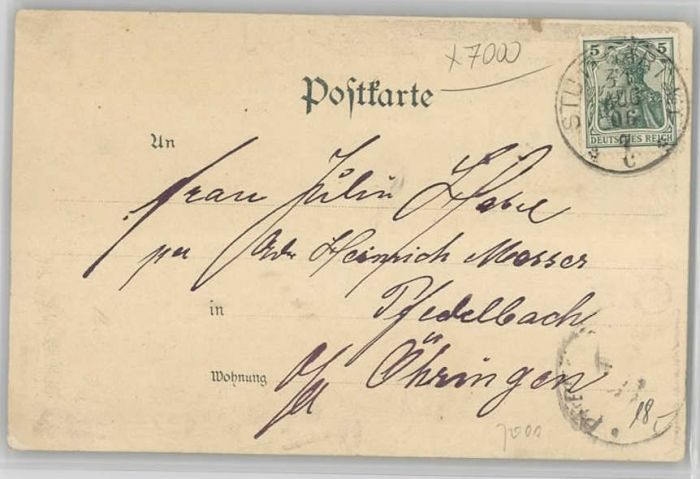 x7000
5 5
DEUTSCHES REICH
STUTTGART
31
AUG
06
Postkarte
An
Frau Julie
per Adr Heinrich Messer
in Pfedelbach
Wohnung Öhringen
18
7000